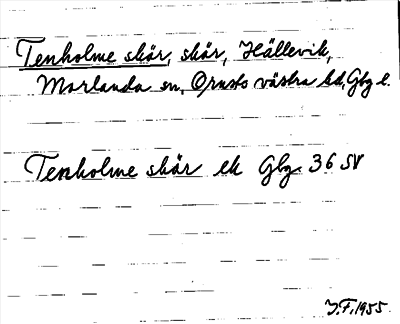 Tenholme skär, skär, Hällevik,
Morlanda sn, Orusts västra hd, Gbg l.
Tenholme skär ek Gbg. 36 SV
J.F. 1955